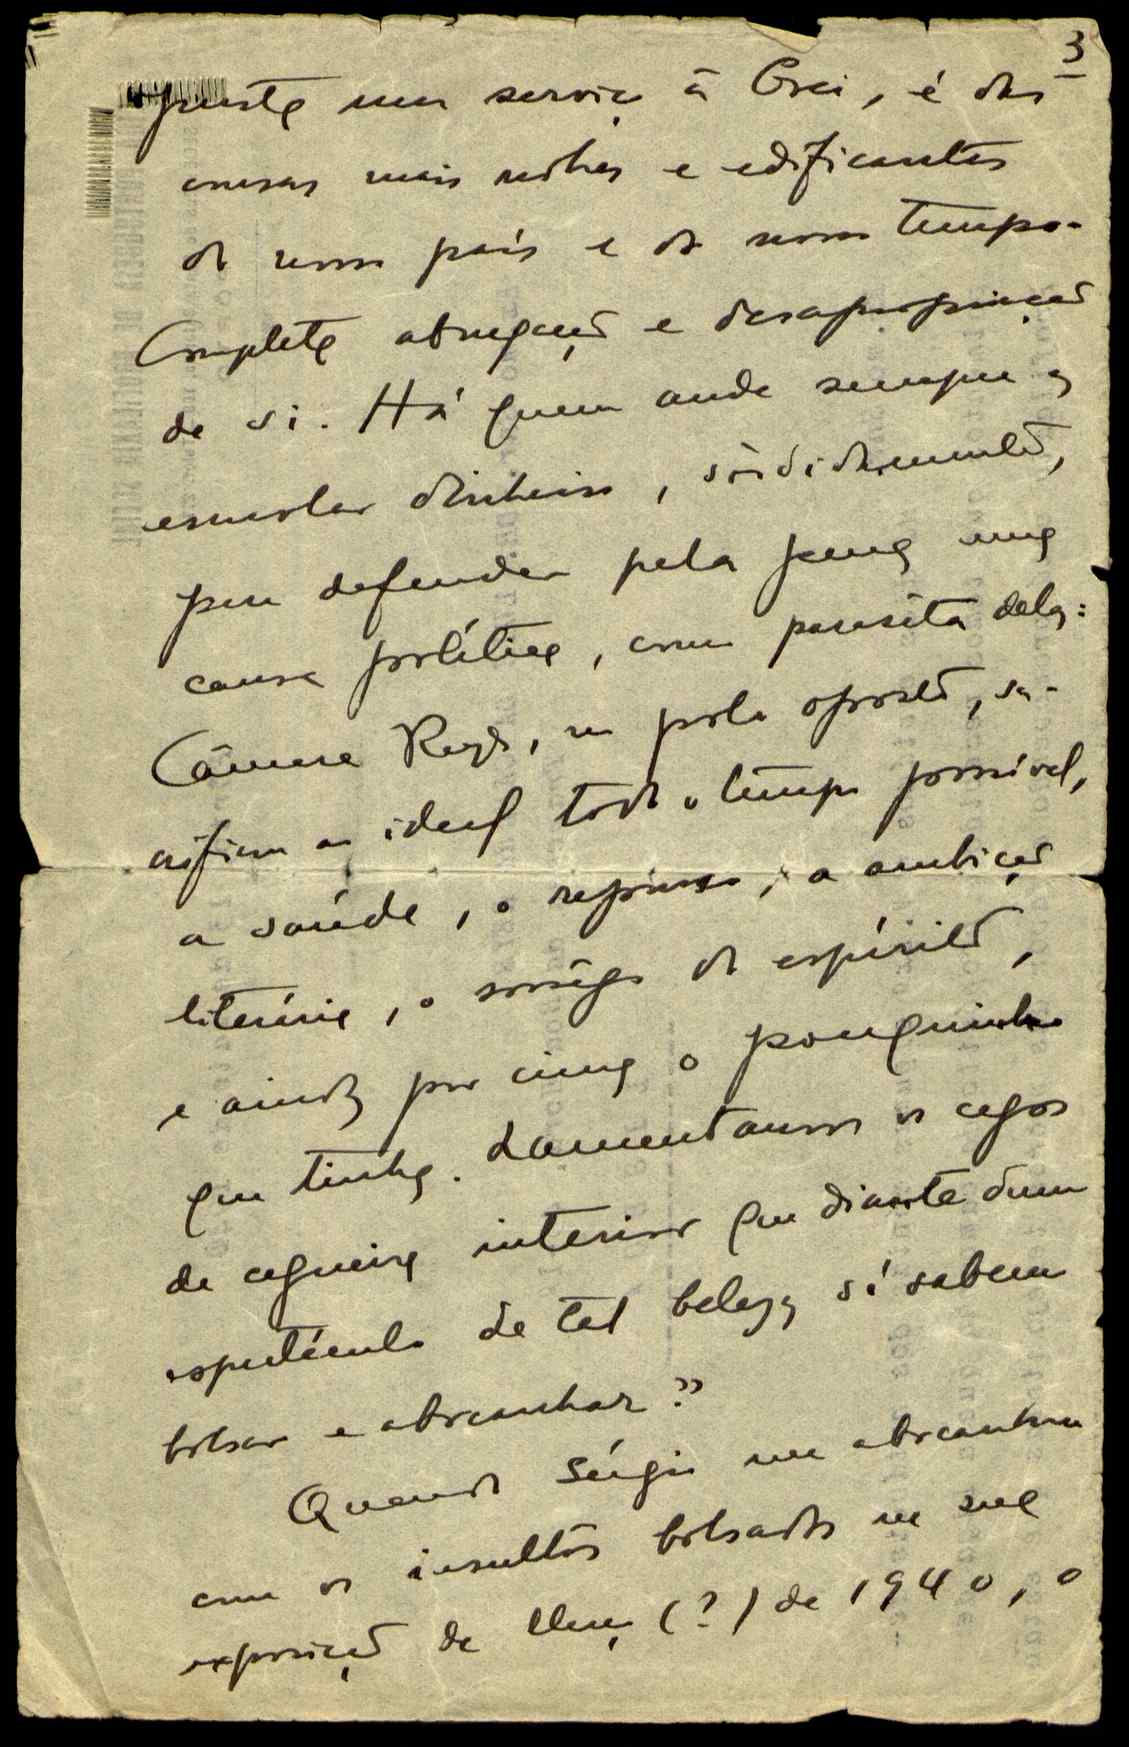 3
presta um serviço à Grei, é das
cousas mais nobres e edificantes
do nosso país e do nosso tempo.
Completa abnegação e desapropriação
de si. Há quem ande sempre a
esmolar dinheiro, sòrdidamente,
para defender pela pena uma
causa política, como parasita dela:
Câmara Reys, no polo oposto, sa-
crificou ao ideal todo o tempo possível,
a saúde, o repouso, a ambição
literária, o sossêgo do espírito,
e ainda por cima o pouquinho
que tinha. Lamentamos os cegos
de cegueira interior que diante dum
espectáculo de tal beleza só sabem
bolsar e abocanhar?"
Quando Sérgio me abocanhou
com os insultos bolsados na sua
exposição de Março (?) de 1940, o